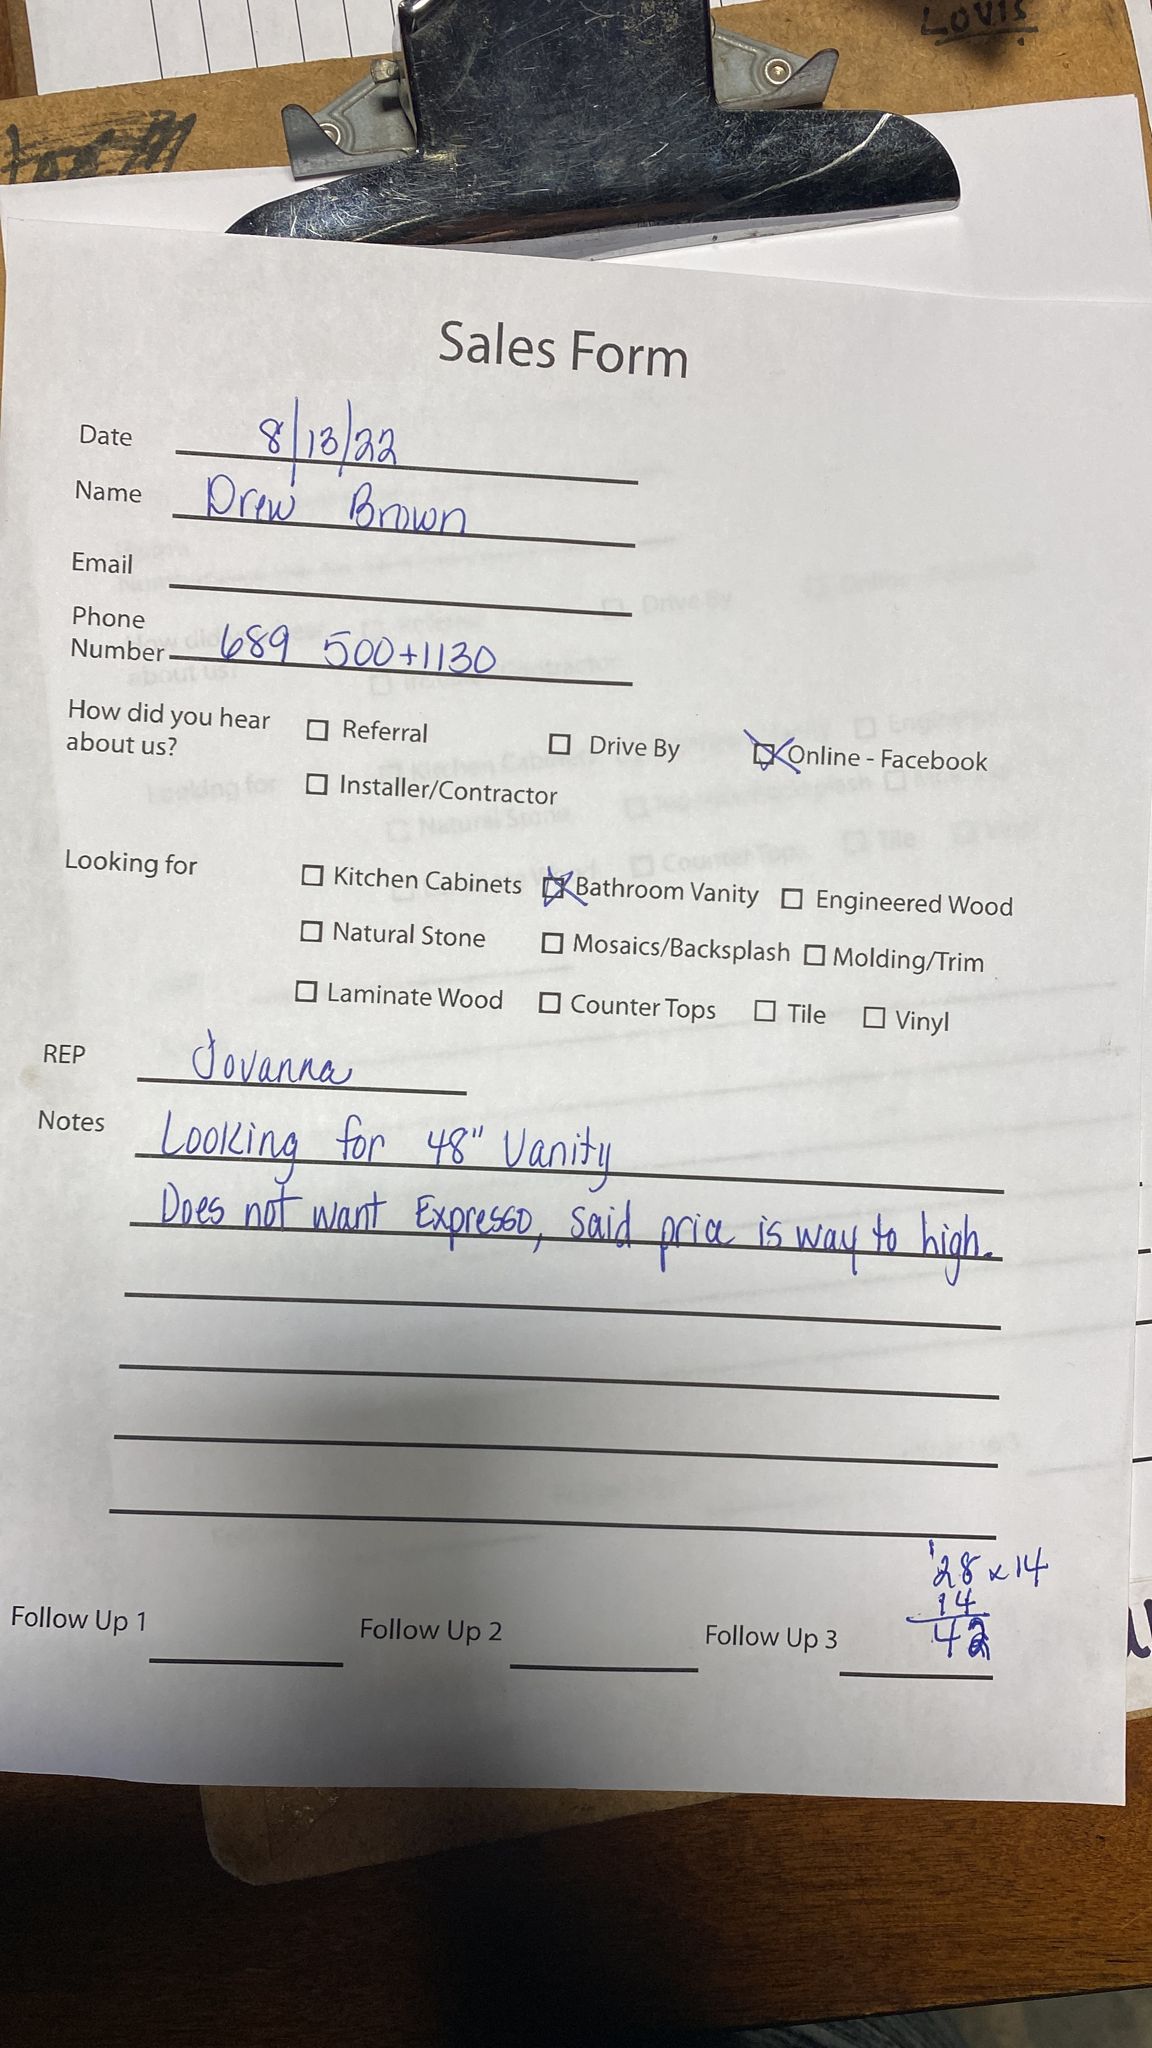 LOVIS
Sales Form
Date 8/13/22
Name Drew Brown
Email
Phone
Number 689 500+1130
How did you hear about us?
☐ Referral ☐ Drive By ☒ Online - Facebook
☐ Installer/Contractor
Looking for ☐ Kitchen Cabinets ☒ Bathroom Vanity ☐ Engineered Wood
☐ Natural Stone ☐ Mosaics/Backsplash ☐ Molding/Trim
☐ Laminate Wood ☐ Counter Tops ☐ Tile ☐ Vinyl
REP Jovanna
Notes Looking for 48" Vanity
Does not want Expresso, said price is way to high.
1
28 x 14
14
42
Follow Up 1 Follow Up 2 Follow Up 3